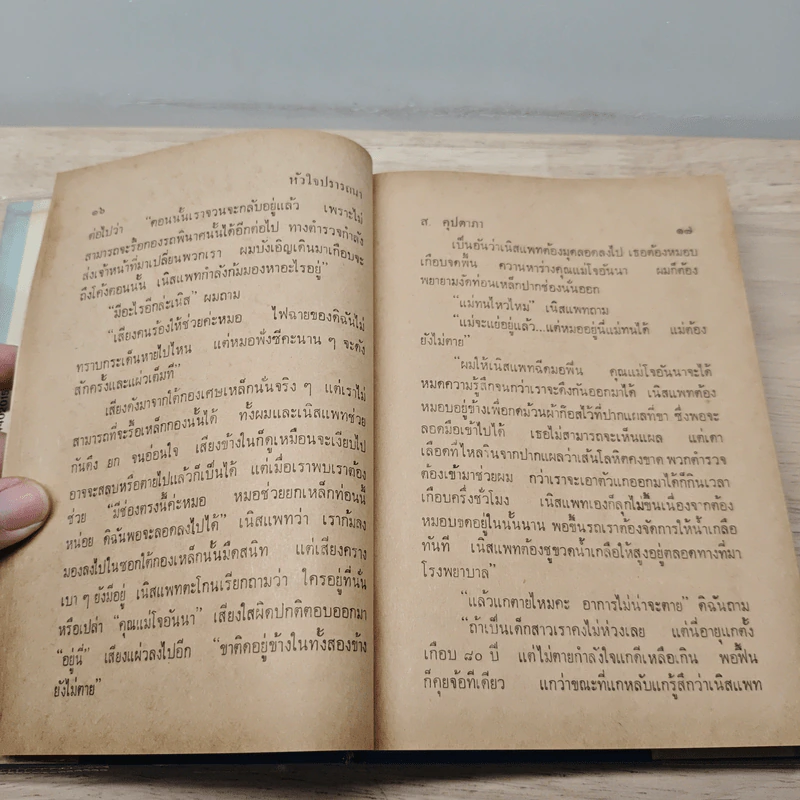 ๑๖ หัวใจปรารถนา
ต่อไปว่า “ตอนนั้นเราจวนจะกลับอยู่แล้ว เพราะไม่
สามารถจะรื้อกองรถพินาศนั้นได้อีกต่อไป ทางตำรวจกำลัง
ส่งเจ้าหน้าที่มาเปลี่ยนพวกเรา ผมบังเอิญเดินมาเกือบจะ
ถึงโค้งตอนนั้น เนิสแพทกำลังก้มมองหาอะไรอยู่”
“มีอะไรอีกล่ะเนิส” ผมถาม
“เสียงคนร้องให้ช่วยค่ะหมอ ไฟฉายของดิฉันไม่
ทราบกระเด็นหายไปไหน แต่หมอฟังซีคะนาน ๆ จะดัง
สักครั้งและแผ่วเต็มที”
เสียงดังมาจากใต้กองเศษเหล็กนั่นจริง ๆ แต่เราไม่
สามารถที่จะรื้อเหล็กกองนั้นได้ ทั้งผมและเนิสแพทช่วย
กันดึง ยก จนอ่อนใจ เสียงข้างในก็ดูเหมือนจะเงียบไป
อาจจะสลบหรือตายไปแล้วก็เป็นได้ แต่เมื่อเราพบเราต้อง
ช่วย “มีช่องตรงนี้ค่ะหมอ หมอช่วยยกเหล็กท่อนนี้
หน่อย ดิฉันพอจะลอดลงไปได้” เนิสแพทว่า เราก้มลง
มองลงไปในซอกใต้กองเหล็กนั้นมืดสนิท แต่เสียงคราง
เบา ๆ ยังมีอยู่ เนิสแพทตะโกนเรียกถามว่า ใครอยู่ที่นั่น
หรือเปล่า “คุณแม่โจอันนา” เสียงใสผิดปกติตอบออกมา
“อยู่นี่” เสียงแผ่วลงไปอีก “ขาติดอยู่ข้างในทั้งสองข้าง
ยังไม่ตาย”
ส. คุปตาภา ๑๗
เป็นอันว่าเนิสแพทต้องมุดลอดลงไป เธอต้องหมอบ
เกือบจดพื้น ควานหาร่างคุณแม่โจอันนา ผมก็ต้อง
พยายามงัดท่อนเหล็กปากช่องนั้นออก
“แม่ทนไหวไหม” เนิสแพทถาม
“แม่จะแย่อยู่แล้ว...แต่หมออยู่นี่แม่ทนได้ แม่ต้อง
ยังไม่ตาย”
“ผมให้เนิสแพทฉีดมอฟีน คุณแม่โจอันนาจะได้
หมดความรู้สึกจนกว่าเราจะดึงท่านออกมาได้ เนิสแพทต้อง
หมอบอยู่ข้างเพื่อกดม้วนผ้าก๊อสไว้ที่ปากแผลที่ขา ซึ่งพอจะ
ลอดมือเข้าไปได้ เธอไม่สามารถจะเห็นแผล แต่เดา
เลือดที่ไหลรินจากปากแผลว่าเส้นโลหิตคงขาด พวกตำรวจ
ต้องเข้ามาช่วยผม กว่าเราจะเอาตัวแกออกมาได้ก็กินเวลา
เกือบครึ่งชั่วโมง เนิสแพทเองก็ลุกไม่ขึ้นเนื่องจากต้อง
หมอบขดอยู่ในนั้นนาน พอขึ้นรถเราต้องจัดการให้น้ำเกลือ
ทันที เนิสแพทต้องชูขวดน้ำเกลือให้สูงอยู่ตลอดทางที่มา
โรงพยาบาล”
“แล้วแกตายไหมคะ อาการไม่น่าจะตาย” ดิฉันถาม
“ถ้าเป็นเด็กสาวเราคงไม่ห่วงเลย แต่นี่อายุแกตั้ง
เกือบ ๘๐ ปี แต่ไม่ตายกำลังใจแกดีเหลือเกิน พอฟื้น
ก็คุยจ้อทีเดียว แกว่าขณะที่แกหลับแกรู้สึกว่าเนิสแพท